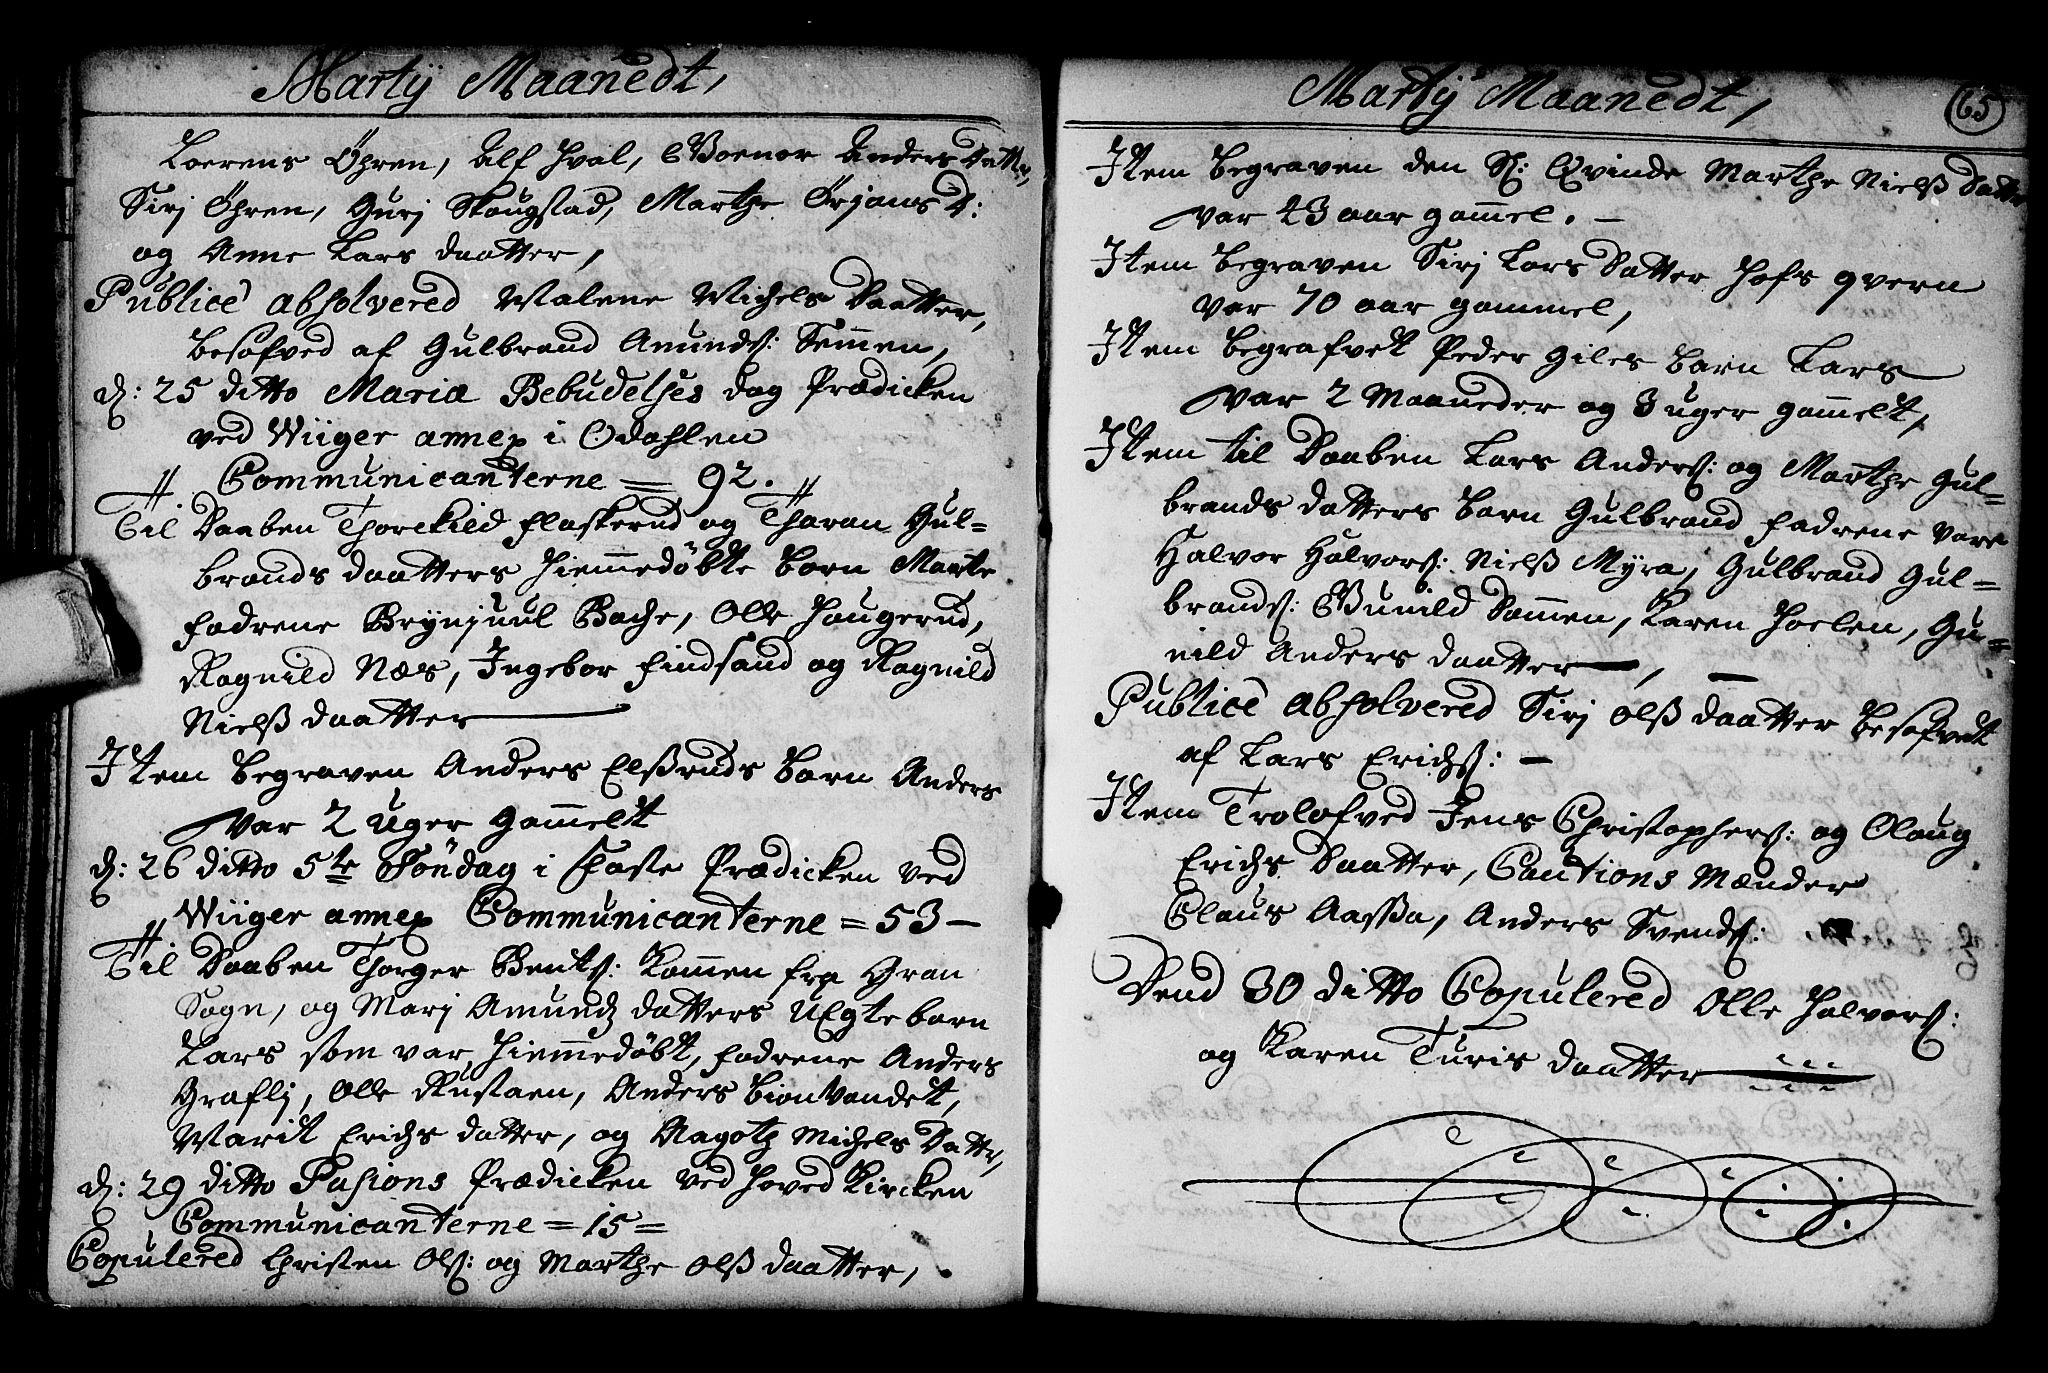 Martÿ Maanedt,
Loerens Öhren, Alf Hval, Goenor Anders Datt:
Sirj Öhren, Gurj Skougstad, Marthe Örjans d:
og Anne Lars daatter,
Publicè absolvered Malene Michels Daatter,
besofved af Gulbrand Amunds: Semmen,
d: 25 ditto Mariæ Bebudelses dag Prædicken
ved Wiiger annex i Odahlen
Communicanterne = 92.
Til Daaben Thorekild Flaskerud og Tharan Gul=
brands daatters hiemmedöbte barn Marte
fadrene Brÿnjuul Bache, Olle Haugerud,
Ragnild Næs, Ingebor Findsand og Ragnild
Nielß daatter
Item begraven Anders Elßruds barn Anders
var 2 uger gammeldt
d: 26 ditto 5te Söndag i Faste Prædicken ved
Wiiger annex Communicanterne = 53 —
Til Daaben Thorger Bents: kommen fra Gran
Sogn, og Marj Amundz datters uEgte barn
Lars som var hiemmedöbt, fadrene Anders
Graflj, Olle Rustaen, Anders biontvandet,
Marit Erichs datter, og Ragotz Michels Datt:,
d: 29 ditto Pasions Prædicken ved hoved Kircken
Communicanterne = 15 =
Copulered Christen Ols: og Marthe Olß daatter,
Martÿ Maanedt,
65
Item begraven den Sl: Qvinde Marthe Nielß Datter
var 43 aar gammel. —
Item begraven Sirj Lars Datter Hofs qvern
var 70 aar gammel,
Item begrafvet Peder Giles barn Lars
var 2 Maaneder og 3 uger gammelt,
Item til Daaben Lars Anders: og Marthe Gul=
brands datters barn Gulbrand fadrene vare
Halvor Halvors: Nielß Mÿra, Gulbrand Gul=
brands: Gunild Dammen, Karen Hoelen, Gu=
nild Anders daatter —, —
Publicè absolvered Sirj Olß daatter besofvedt
af Lars Erichs: —
Item Trolofved Jens Christophers: og Olaug
Erichs Daatter, Cautions Mænder
Claus Aaßa, Anders Svends:
Dend 30 ditto Copulered Olle Halvors:
og Karen Turis daatter